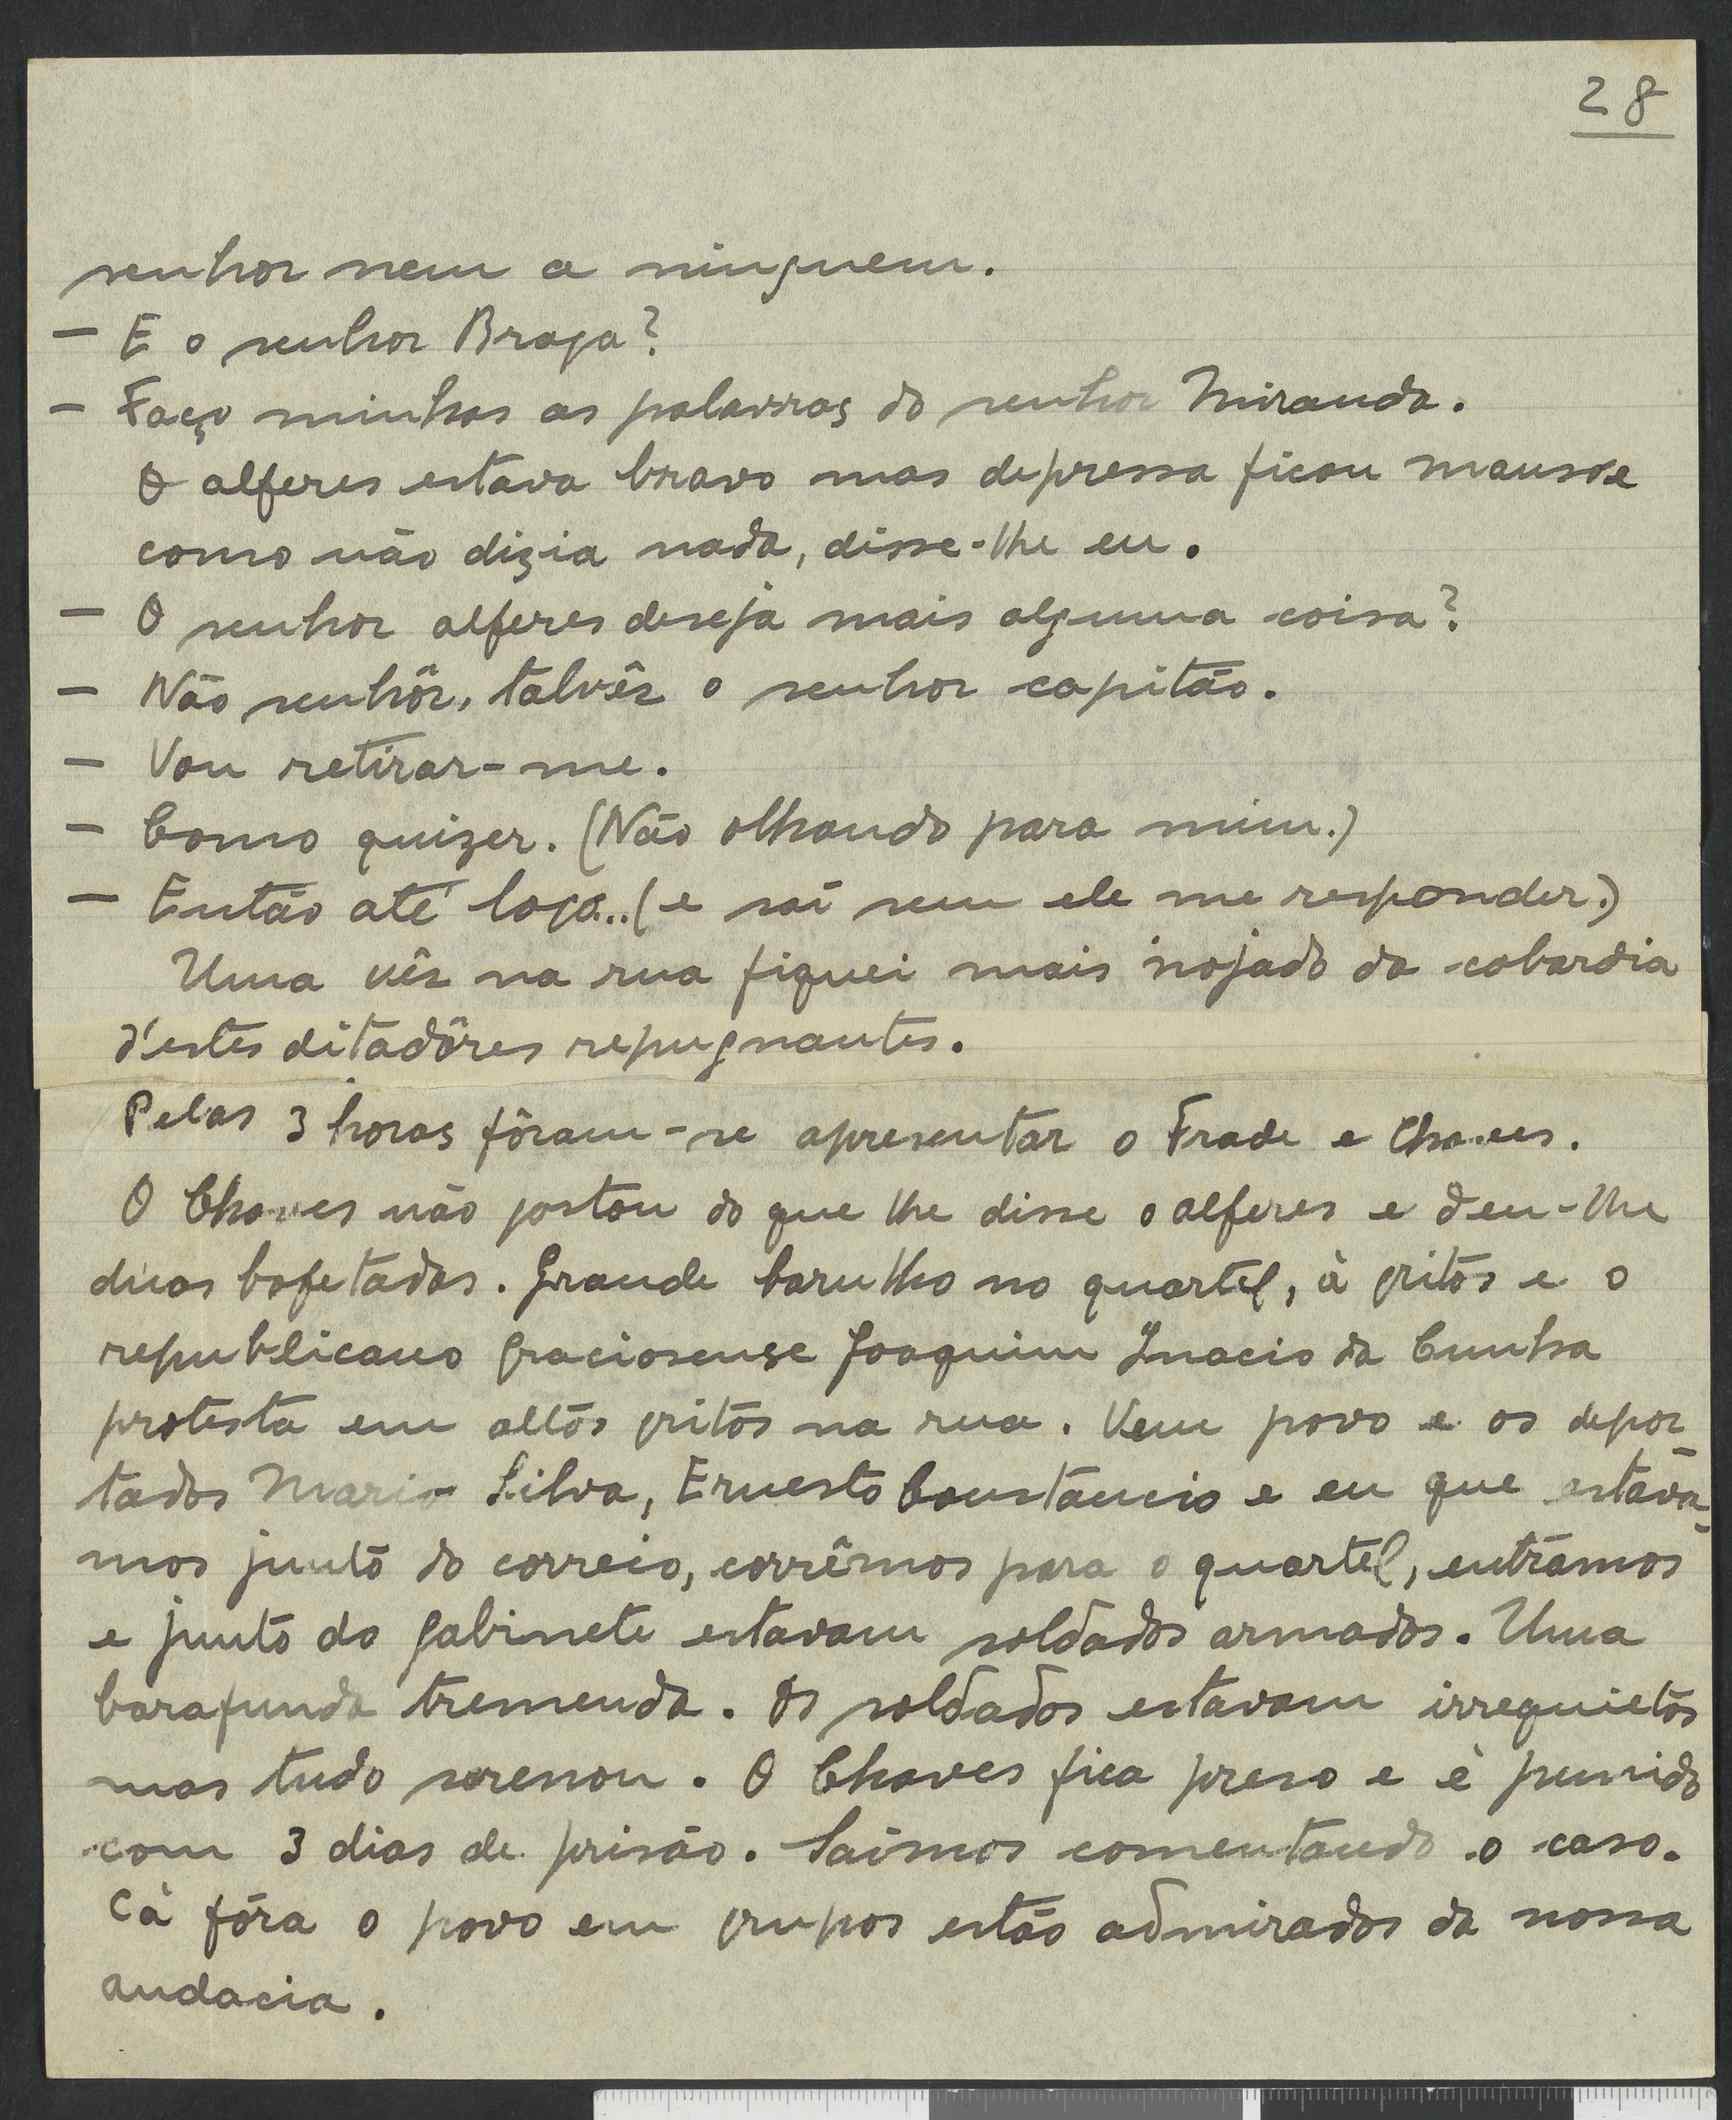 28
senhor nem a ninguem.
— E o senhor Braga?
— Faço minhas as palavras do senhor Miranda.
O alferes estava bravo mas depressa ficou manso e
como não dizia nada, disse-lhe eu.
— O senhor alferes deseja mais alguma coisa?
— Não senhôr, talvês o senhor capitão.
— Vou retirar-me.
— Como quizer. (Não olhando para mim.)
— Então até logo... (e saí sem ele me responder.)
Uma vês na rua fiquei mais nojado da cobardia
d'estes ditadôres repugnantes.
Pelas 3 horas fôram-se apresentar o Frade e Chaves.
O Chaves não gostou do que lhe disse o alferes e deu-lhe
duas bofetadas. Grande barulho no quartel, à gritos e o
republicano graciosense Joaquim Inacio da Cunha
protesta em altos gritos na rua. Vem povo e os depor-
tados Mario Silva, Ernesto Constâncio e eu que estáva-
mos junto do correio, corrêmos para o quartel, entrámos
e junto do gabinete estavam soldados armados. Uma
barafunda tremenda. Os soldados estavam irrequietos
mas tudo serenou. O Chaves fica preso e è punido
com 3 dias de prisão. Saímos comentando o caso.
Cà fóra o povo em grupos estão admirados da nossa
audacia.